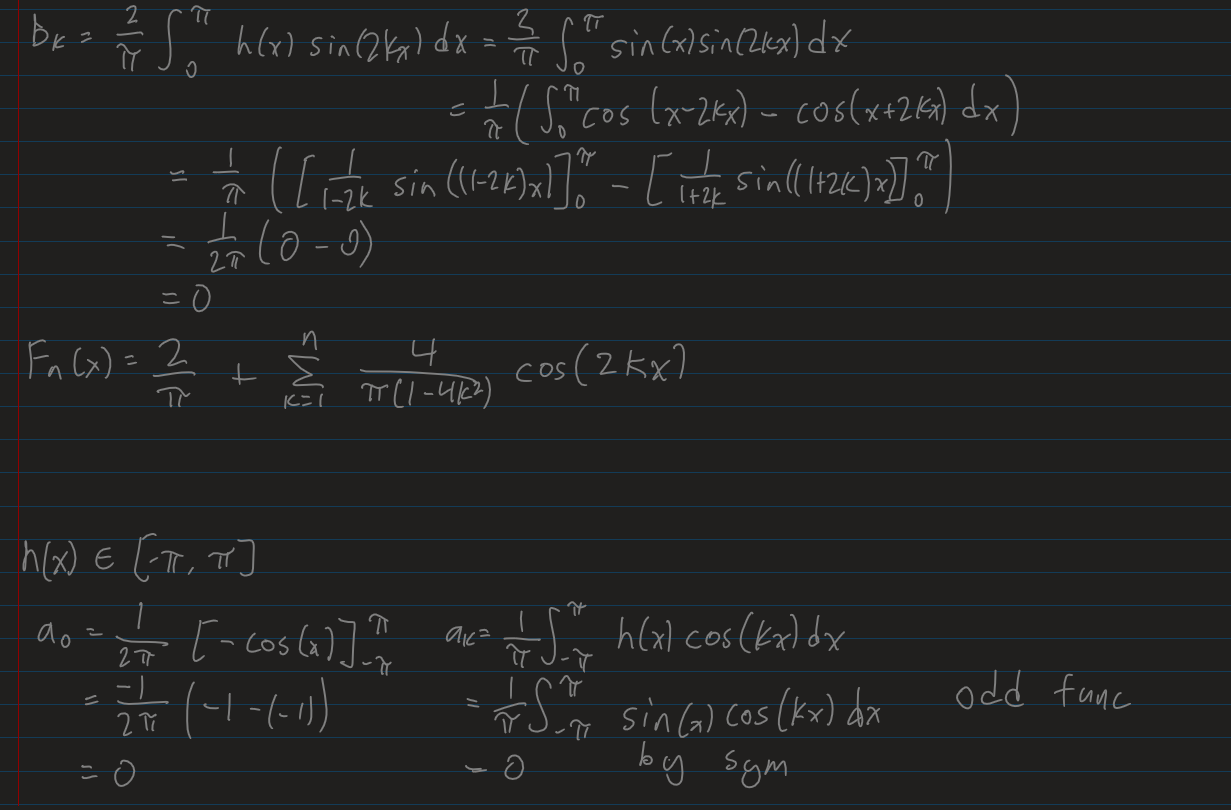 b_k = 2/π ∫_0^π h(x) sin(2kx) dx = 2/π ∫_0^π sin(x) sin(2kx) dx
= 1/π (∫_0^π cos (x-2kx) - cos(x+2kx) dx)
= 1/π ([1/(1-2k) sin((1-2k)x)]_0^π - [1/(1+2k) sin((1+2k)x)]_0^π)
= 1/2π (0 - 0)
= 0
F_n(x) = 2/π + Σ_{k=1}^n 4/(π(1-4k²)) cos(2kx)
h(x) ∈ [-π, π]
a_0 = 1/2π [-cos(x)]_{-π}^π a_k = 1/π ∫_{-π}^π h(x) cos(kx) dx
= -1/2π (-1-(-1)) = 1/π ∫_{-π}^π sin(x) cos(kx) dx odd func
= 0 = 0 by sym